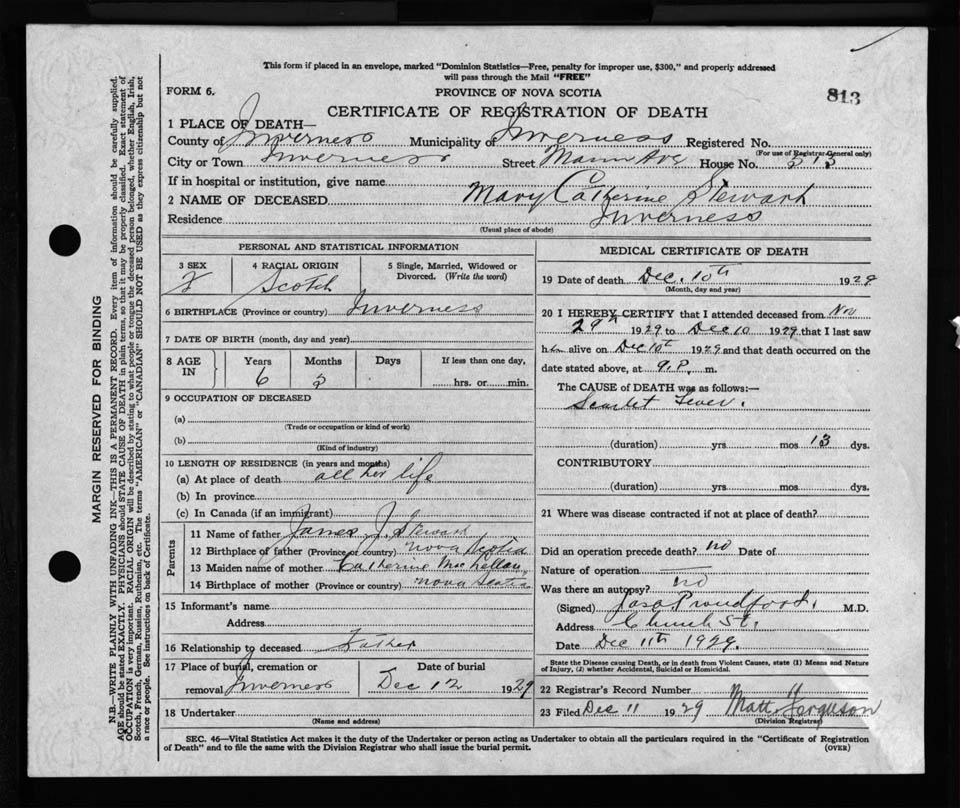 This form if placed in an envelope, marked "Dominion Statistics—Free, penalty for improper use, $300," and properly addressed
will pass through the Mail "FREE"
FORM 6.
PROVINCE OF NOVA SCOTIA
813
CERTIFICATE OF REGISTRATION OF DEATH
1 PLACE OF DEATH—
County of Inverness Municipality of Inverness Registered No.
(For use of Registrar General only)
City or Town Inverness Street Main Ave House No.
If in hospital or institution, give name
2 NAME OF DECEASED Mary Catherine Stewart
Residence Inverness
(Usual place of abode)
PERSONAL AND STATISTICAL INFORMATION
3 SEX 4 RACIAL ORIGIN 5 Single, Married, Widowed or
Divorced. (Write the word)
F Scotch
6 BIRTHPLACE (Province or country) Inverness
7 DATE OF BIRTH (month, day and year)
8 AGE Years Months Days If less than one day,
IN 6 3 hrs. or min.
9 OCCUPATION OF DECEASED
(a)
(Trade or occupation or kind of work)
(b)
(Kind of industry)
10 LENGTH OF RESIDENCE (in years and months)
(a) At place of death all her life
(b) In province
(c) In Canada (if an immigrant)
Parents
11 Name of father James J. Stewart
12 Birthplace of father (Province or country) Nova Scotia
13 Maiden name of mother Catherine MacLellan
14 Birthplace of mother (Province or country) Nova Scotia
15 Informant's name
Address
16 Relationship to deceased Father
17 Place of burial, cremation or Date of burial
removal Inverness Dec 12 1929
18 Undertaker
(Name and address)
MEDICAL CERTIFICATE OF DEATH
19 Date of death Dec. 10th 1929
(Month, day and year)
20 I HEREBY CERTIFY that I attended deceased from Nov
29th 1929 to Dec 10 1929 that I last saw
her alive on Dec 10th 1929 and that death occurred on the
date stated above, at 9 P. m.
The CAUSE of DEATH was as follows:—
Scarlet Fever.
(duration) yrs mos 13 dys.
CONTRIBUTORY
(duration) yrs. mos. dys.
21 Where was disease contracted if not at place of death?
Did an operation precede death? no Date of
Nature of operation —
Was there an autopsy? no
(Signed) Jas. Proudfoot. M.D.
Address Church St.
Date Dec 11th 1929.
State the Disease causing Death, or in death from Violent Causes, state (1) Means and Nature
of Injury, (2) whether Accidental, Suicidal or Homicidal.
22 Registrar's Record Number
23 Filed Dec 11 1929 Matt Ferguson
(Division Registrar)
SEC. 46—Vital Statistics Act makes it the duty of the Undertaker or person acting as Undertaker to obtain all the particulars required in the "Certificate of Registration
of Death" and to file the same with the Division Registrar who shall issue the burial permit.
(OVER)
MARGIN RESERVED FOR BINDING
N.B.—WRITE PLAINLY WITH UNFADING INK—THIS IS A PERMANENT RECORD. Every item of information should be carefully supplied.
AGE should be stated EXACTLY. PHYSICIANS should STATE CAUSE OF DEATH in plain terms, so that it may be properly classified. Exact statement of
OCCUPATION is very important. RACIAL ORIGIN will be described by stating to what people or tongue the deceased person belonged, whether English, Irish,
Scotch, French, German, Russian, Ruthenian, etc. The terms "AMERICAN" or "CANADIAN" SHOULD NOT BE USED as they express citizenship but not
a race or people. See instructions on back of Certificate.